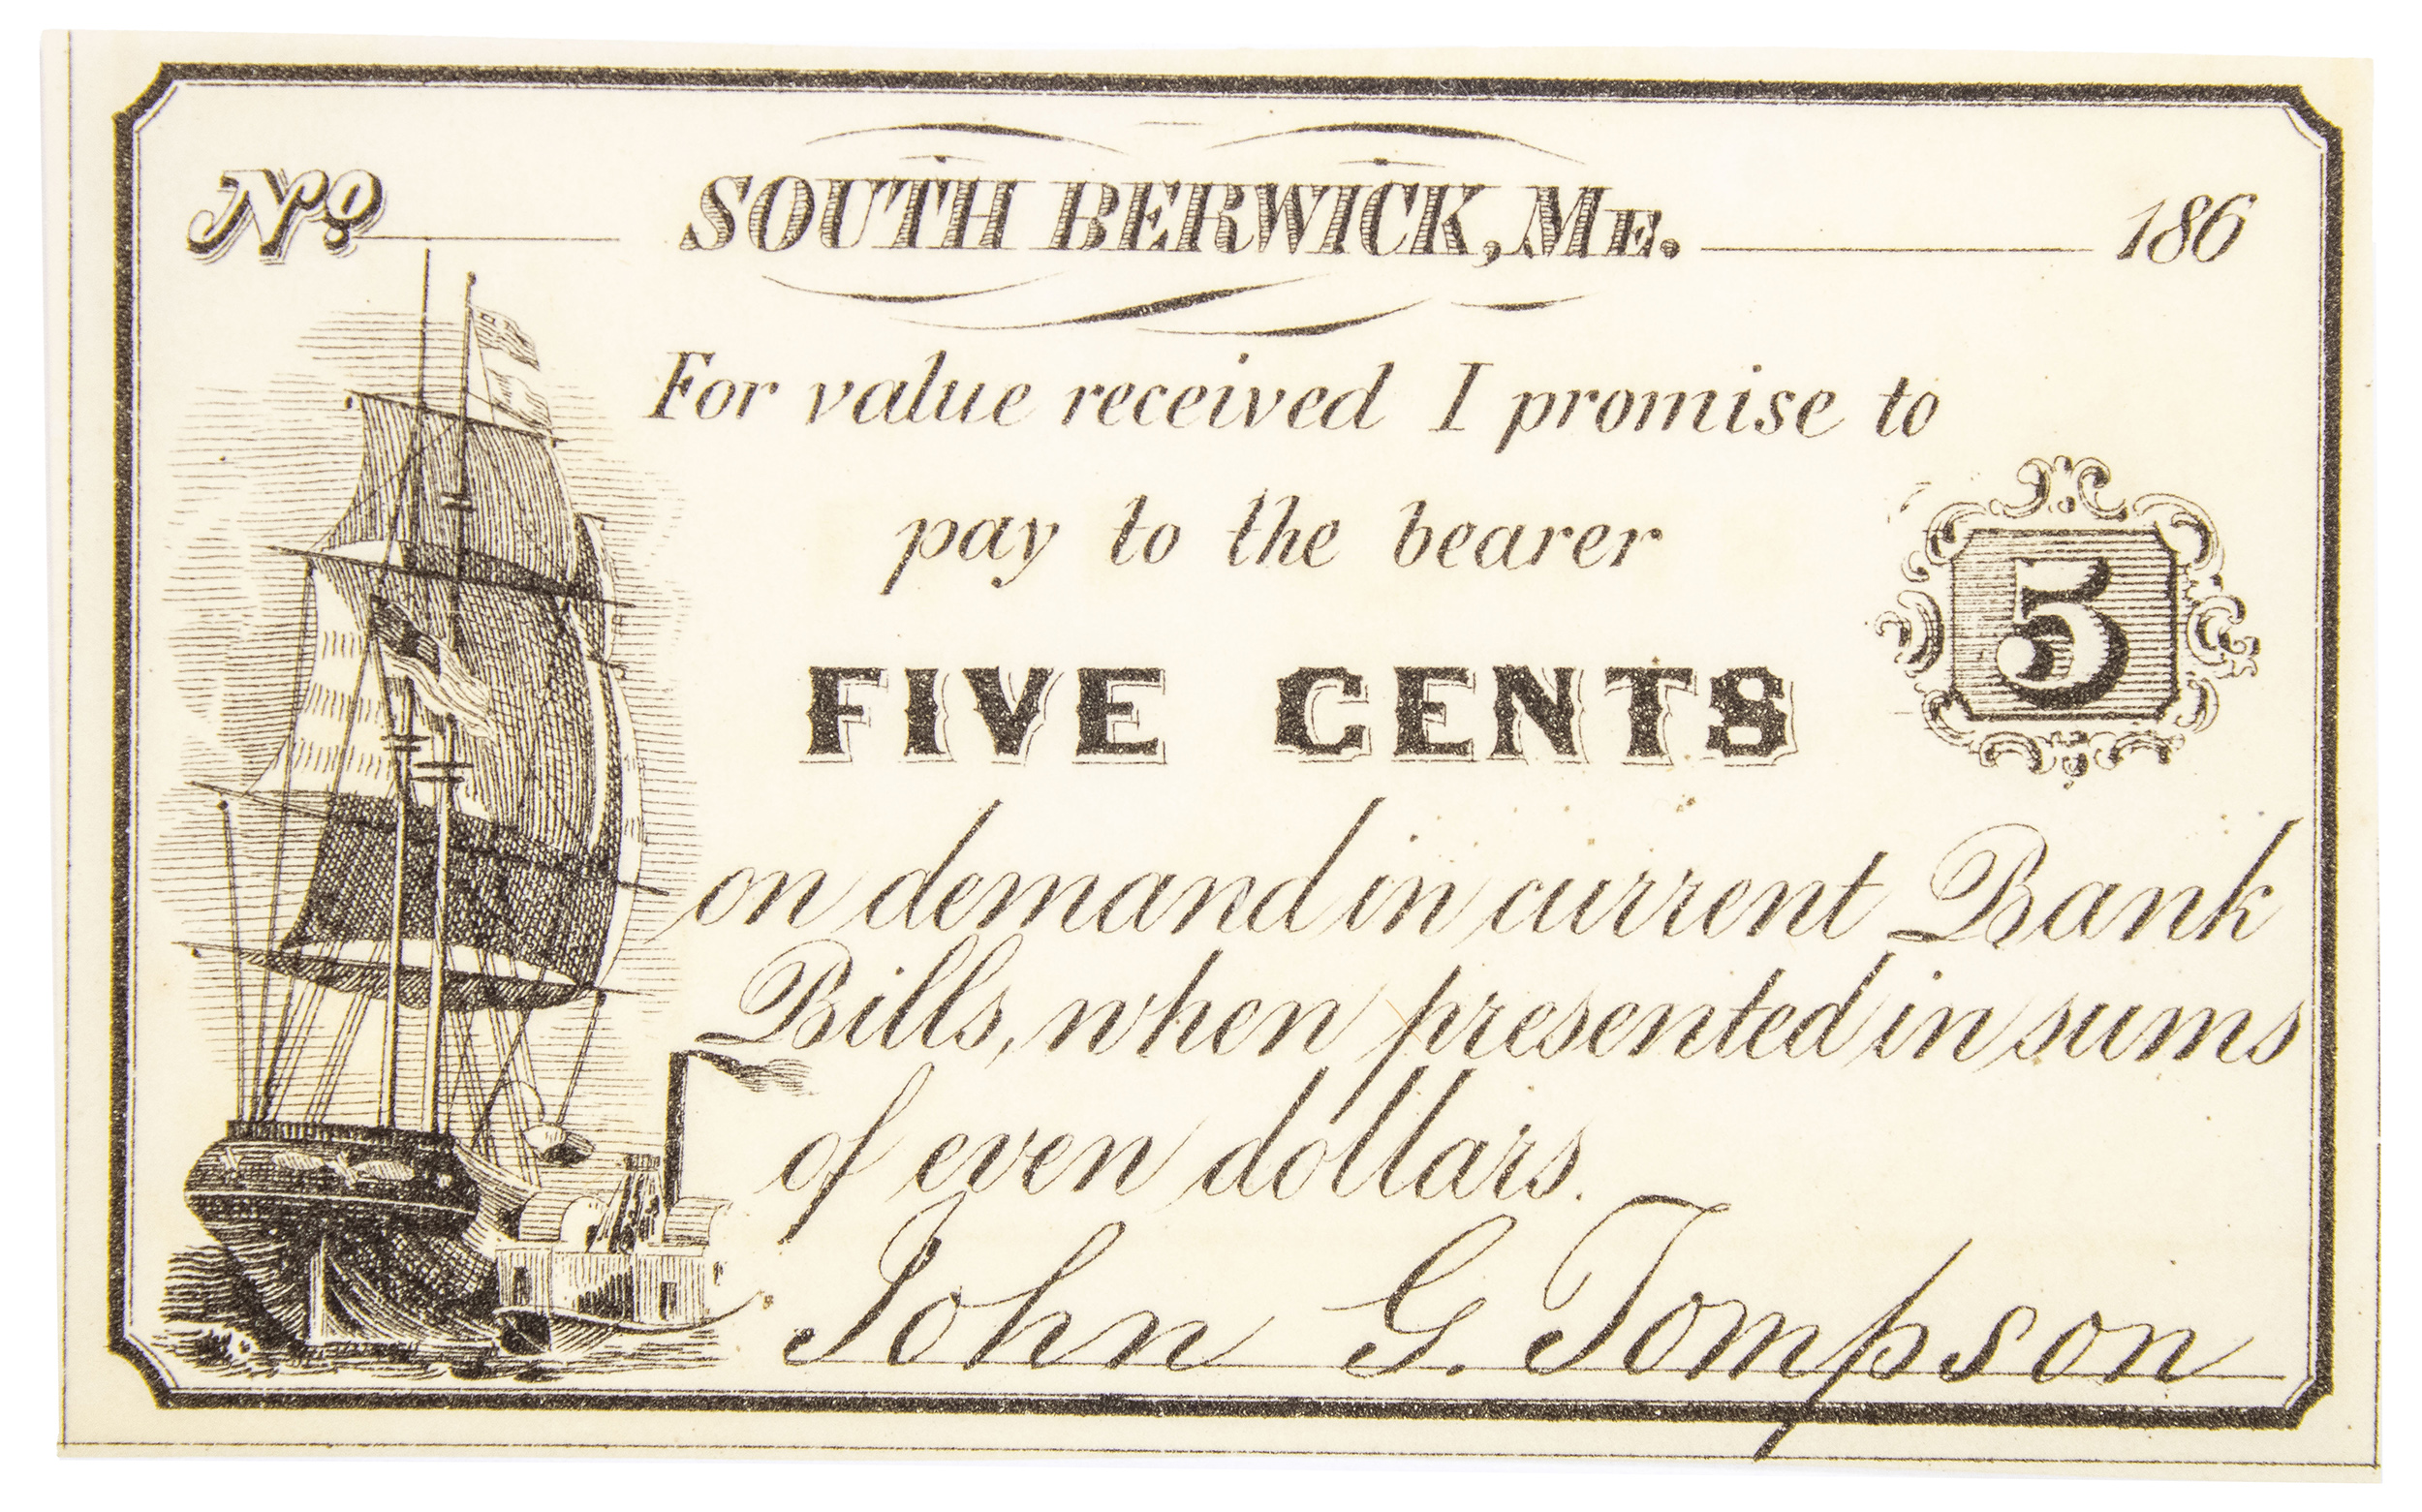 No SOUTH BERWICK, ME. 186
For value received I promise to
pay to the bearer
FIVE CENTS 5
on demand in current Bank
Bills, when presented in sums
of even dollars.
John G. Tompson